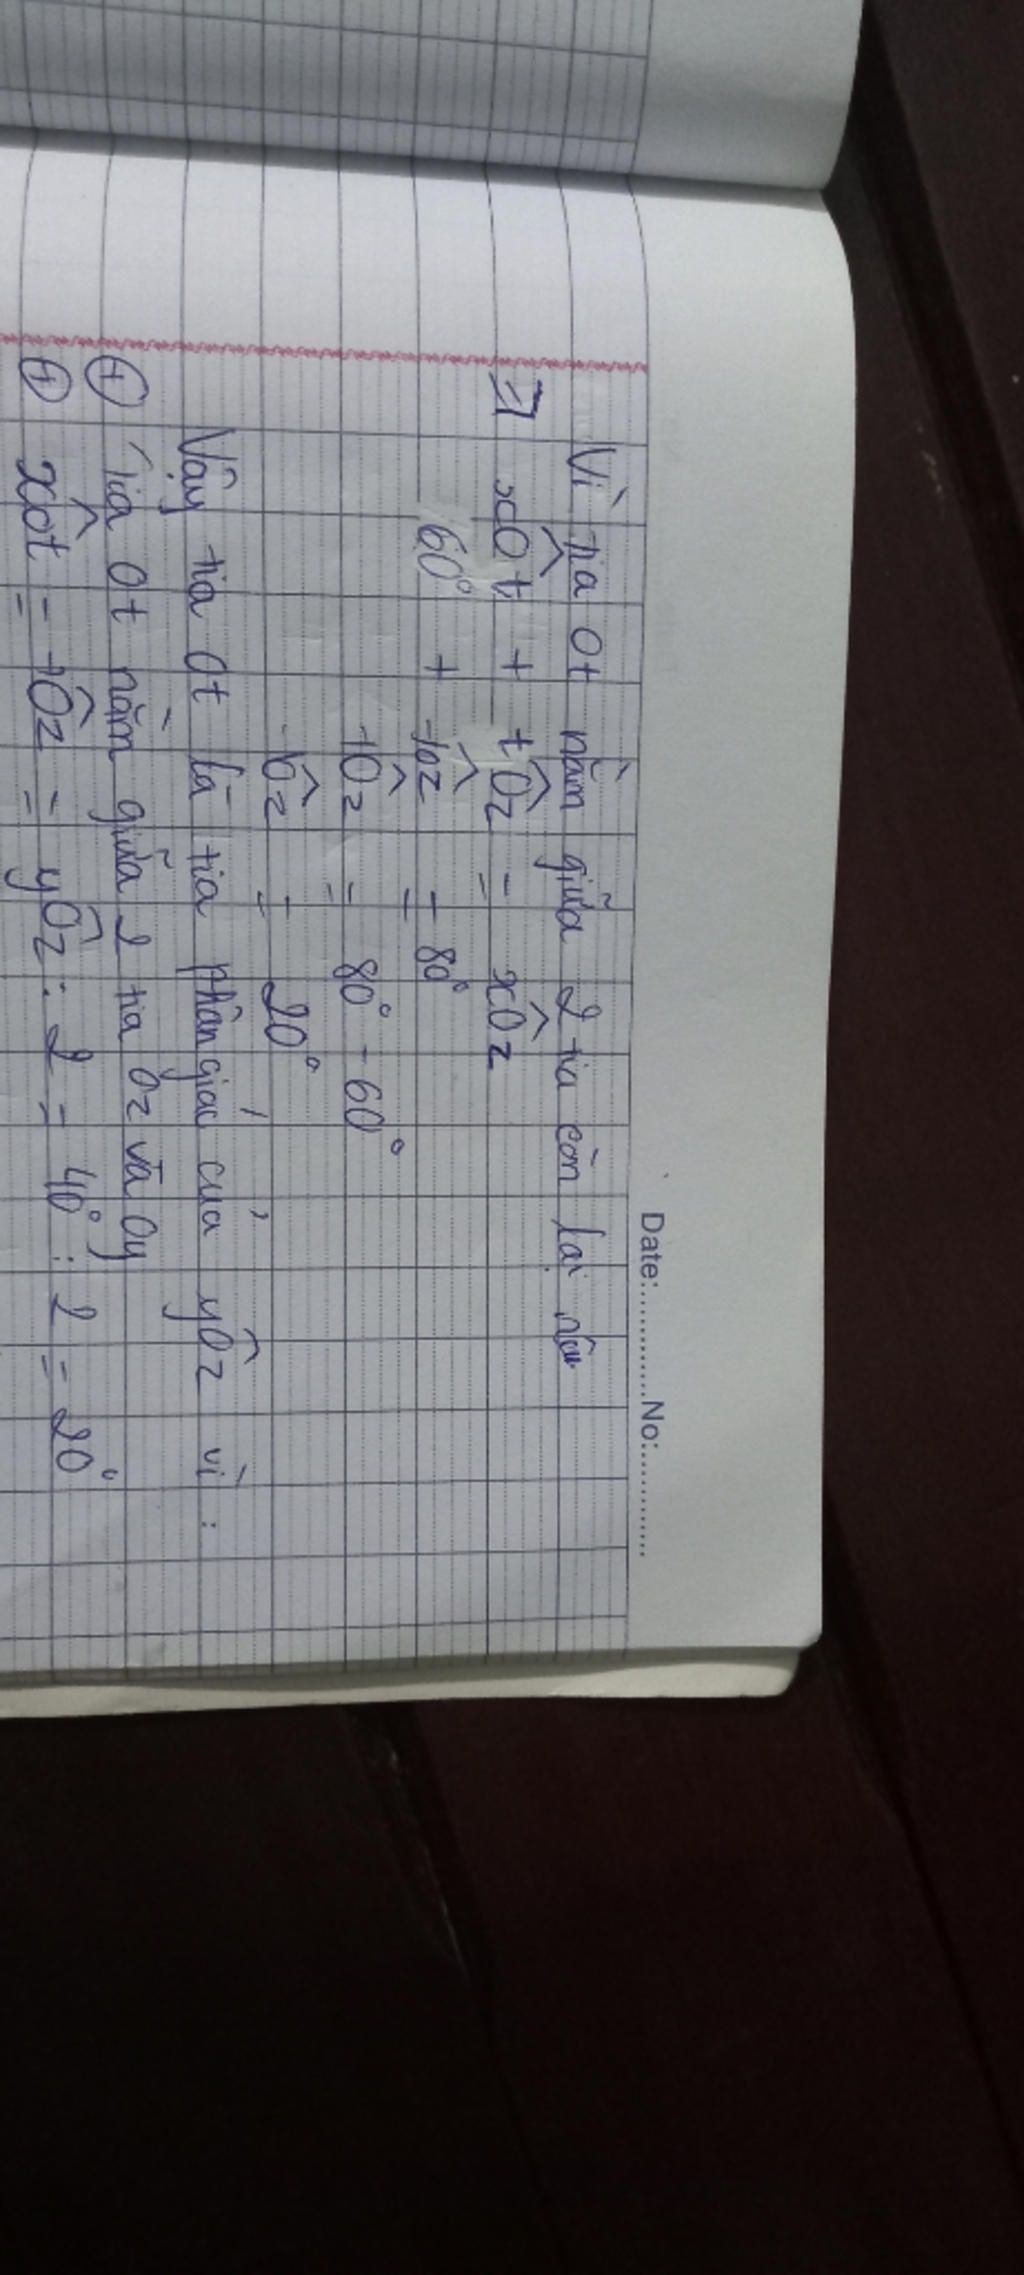 Date:..............No:..............
Vì tia Ot nằm giữa 2 tia còn lại nên
=> xOt̂ + tÔz = xÔz
60° + tÔz = 80°
tÔz = 80° - 60°
tÔz = 20°
Vậy tia Ot là tia phân giác của yÔz vì :
+ Tia Ot nằm giữa 2 tia Oz và Oy
+ xÔt = tÔz = yÔz : 2 = 40° : 2 = 20°